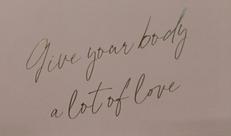 Give your body
a lot of love